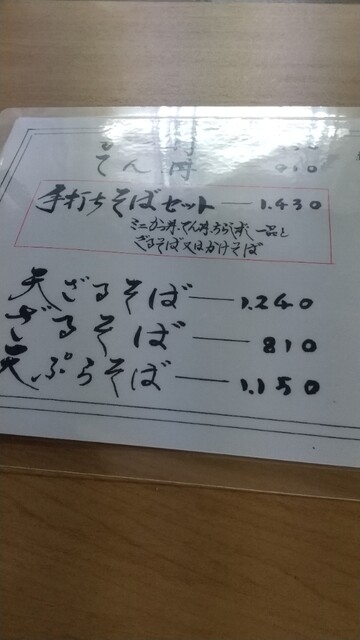 てん丼
手打ちそばセット — 1.430
ミニかつ丼、てん丼、ちらし寿し 一品と
ざるそば又はかけそば
天ざるそば — 1.240
ざるそば — 810
天ぷらそば — 1.150